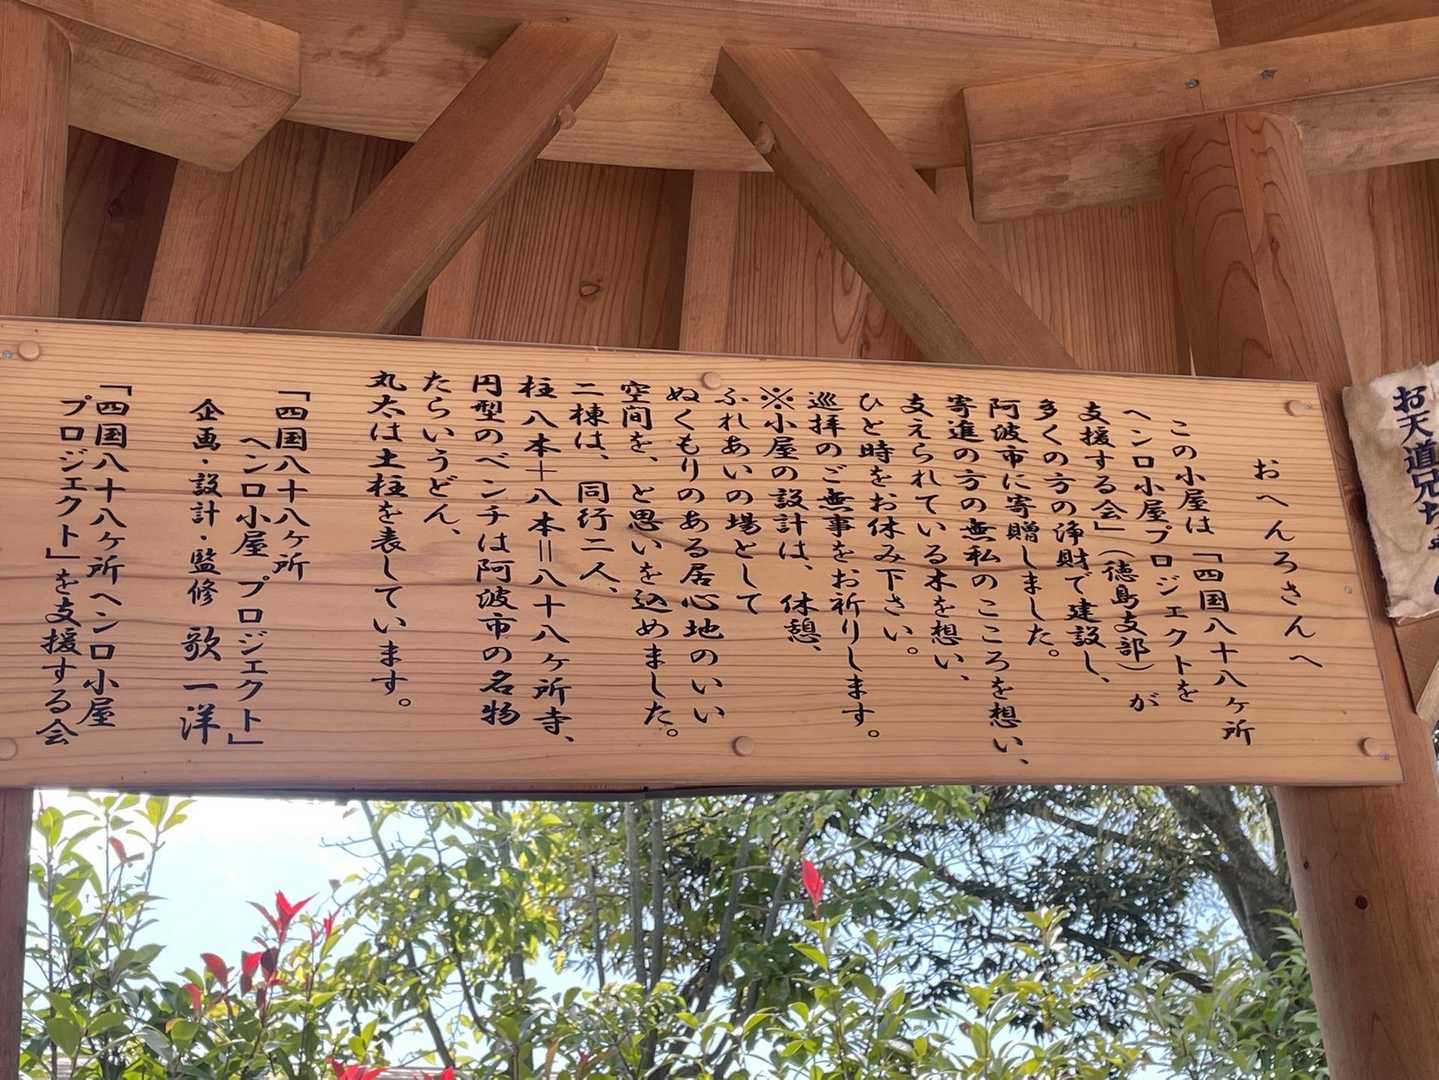 おへんろさんへ
この小屋は「四国八十八ヶ所
ヘンロ小屋プロジェクトを
支援する会」(徳島支部)が
多くの方の浄財で建設し、
阿波市に寄贈しました。
寄進の方の無私のこころを想い、
支えられている木を想い、
ひと時をお休み下さい。
巡拝のご無事をお祈りします。
※小屋の設計は、休憩、
ふれあいの場として
ぬくもりのある居心地のいい
空間を、と思いを込めました。
二棟は、同行二人、
柱 八本+八本=八十八ヶ所寺、
円型のベンチは阿波市の名物
たらいうどん、
丸太は土柱を表しています。
「四国八十八ヶ所
ヘンロ小屋 プロジェクト」
企画・設計・監修 歌一洋
「四国八十八ヶ所ヘンロ小屋
プロジェクト」を支援する会
お天道